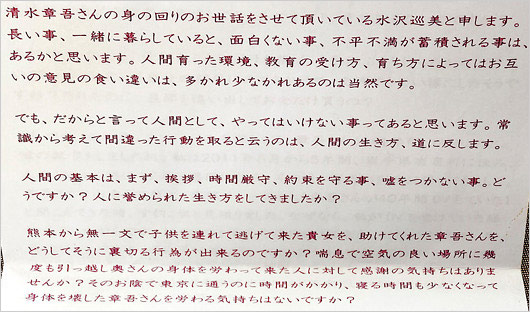 清水章吾さんの身の回りのお世話をさせて頂いている水沢巡美と申します。
長い事、一緒に暮らしていると、面白くない事、不平不満が蓄積される事は、
あるかと思います。人間育った環境、教育の受け方、育ち方によってはお互
いの意見の食い違いは、多かれ少なかれあるのは当然です。
でも、だからと言って人間として、やってはいけない事ってあると思います。常
識から考えて間違った行動を取ると云うのは、人間の生き方、道に反します。
人間の基本は、まず、挨拶、時間厳守、約束を守る事、嘘をつかない事。ど
うですか？人に誉められた生き方をしてきましたか？
熊本から無一文で子供を連れて逃げて来た貴女を、助けてくれた章吾さんを、
どうしてそうに裏切る行為が出来るのですか？喘息で空気の良い場所に幾
度も引っ越し奥さんの身体を労わって来た人に対して感謝の気持ちはありま
せんか？そのお陰で東京に通うのに時間がかかり、寝る時間も少なくなって
身体を壊した章吾さんを労わる気持ちはないですか？